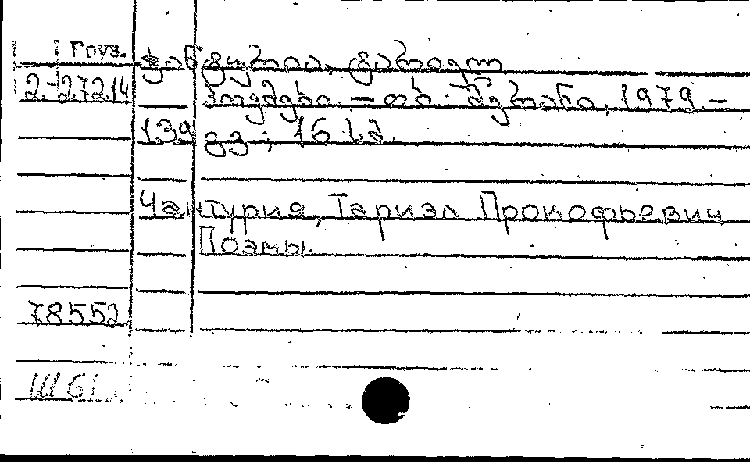 Груз.
ჭანტურია, ტარიელ
2-27214
პოემები. — თბ. მერანი, 1979. —
139 გვ; 16 სმ.
Чантурия, Тариэл Прокофьевич
Поэмы.
78552